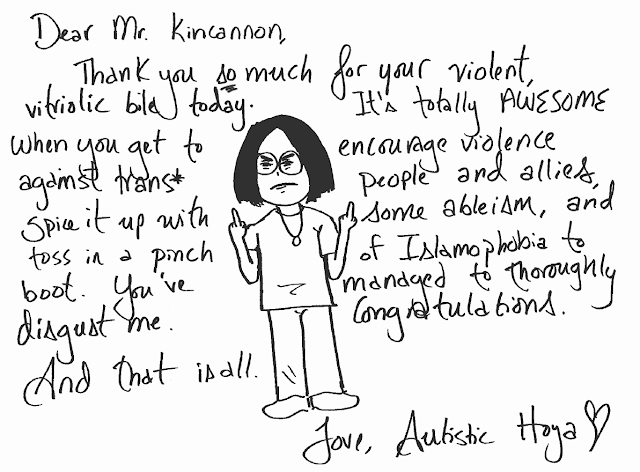 Dear Mr. Kincannon,
Thank you so much for your violent,
vitriolic bile today. It's totally AWESOME
when you get to encourage violence
against trans* people and allies,
spice it up with some ableism, and
toss in a pinch of Islamophobia to
boot. You've managed to thoroughly
disgust me. Congratulations.
And that is all.
Love, Autistic Hoya